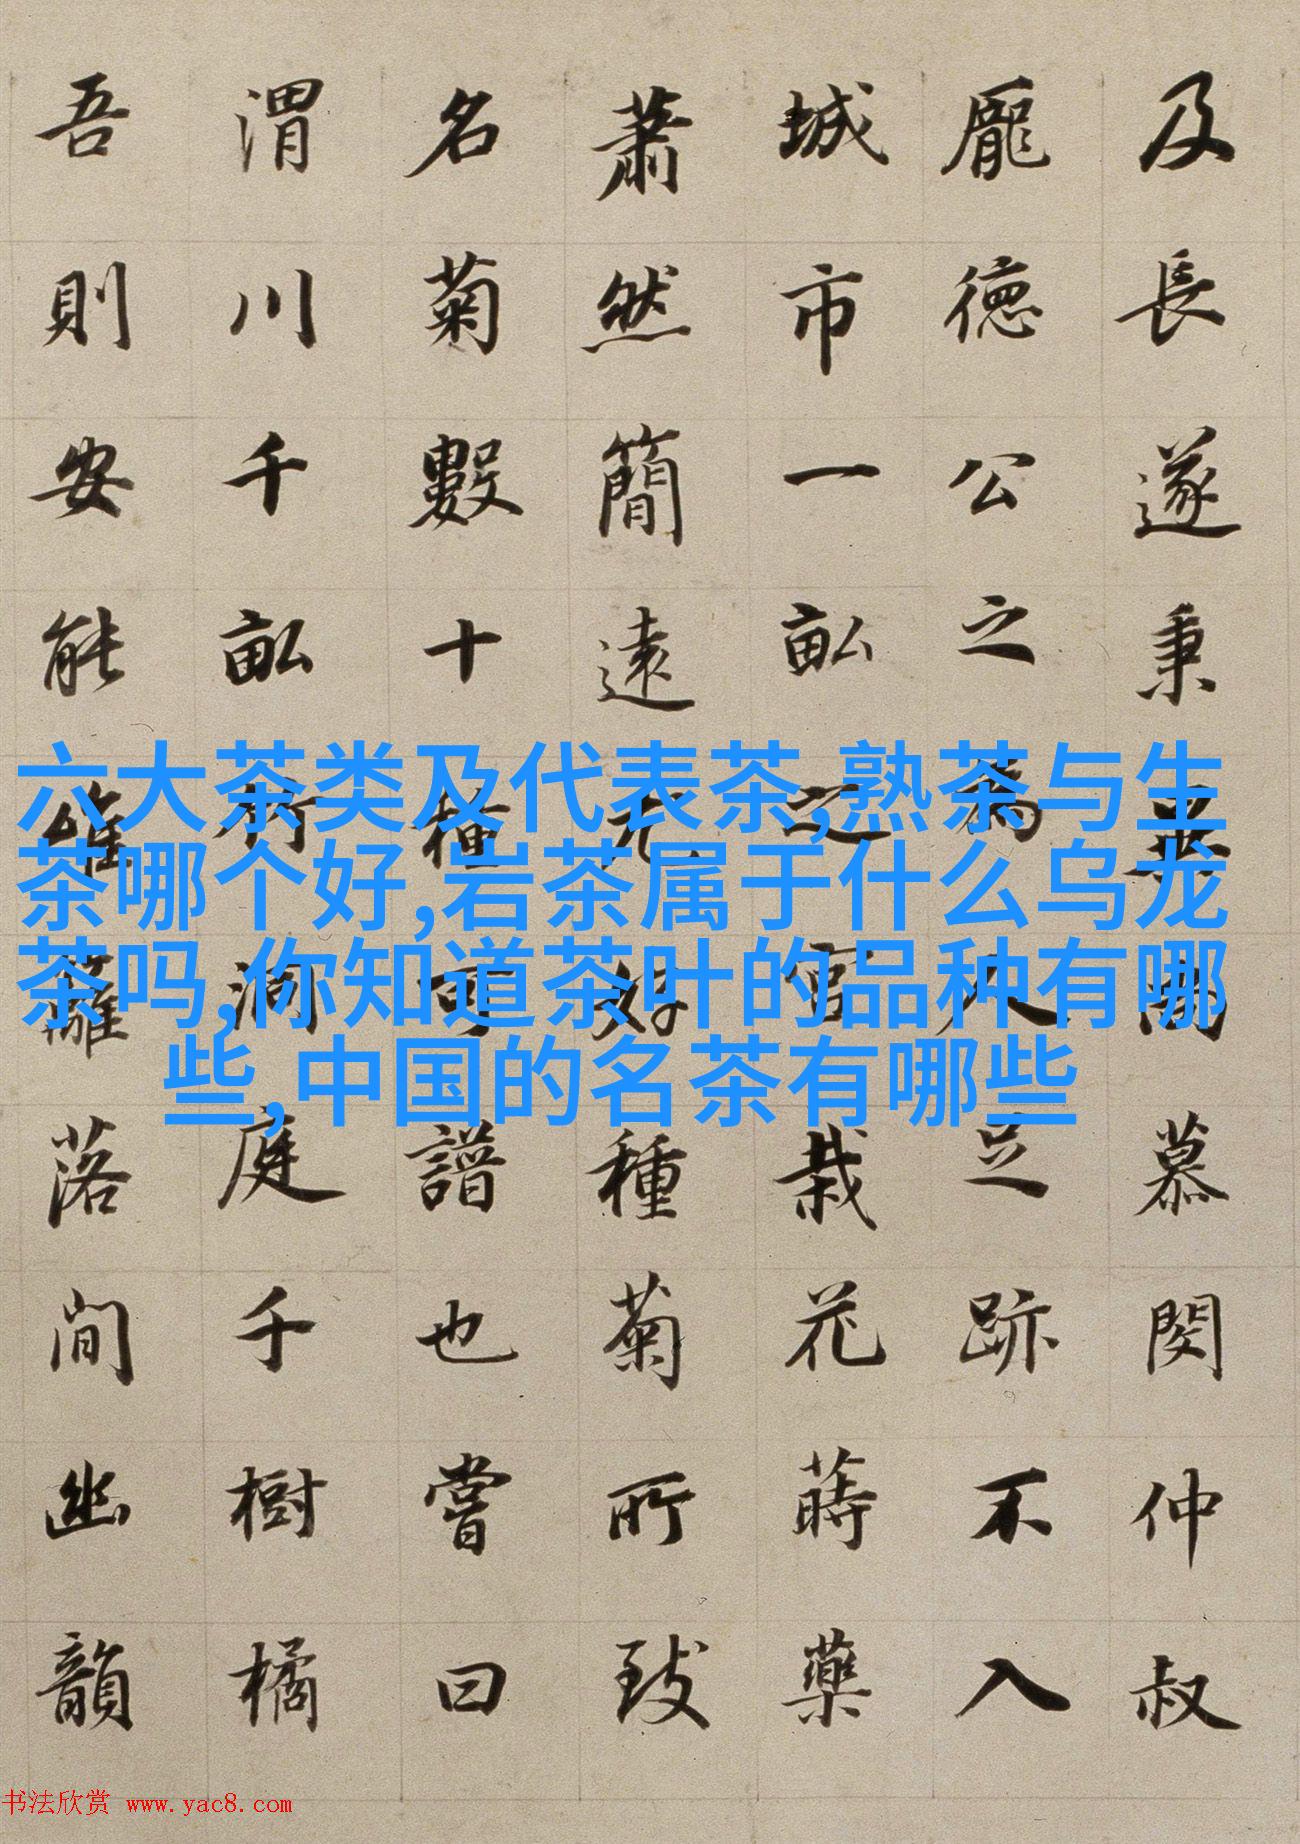 及長遂秉尚慕閔仲叔
龐德公之為人足跡不入
城市一畝之宮栽花蒔藥
蕭然簡遠尤好種菊所致
名菊數十種可譜也嘗曰
渭川千畝竹洞庭千樹橘
吾則安能惟籬落間幽韻
六大茶类及代表茶,熟茶与生
茶哪个好,岩茶属于什么乌龙
茶吗,你知道茶叶的品种有哪
些,中国的名茶有哪些
书法欣赏 www.yac8.com